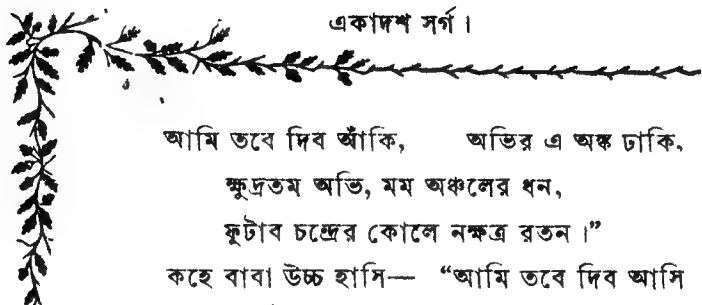 একাদশ সর্গ।
আমি তবে দিব আঁকি, অভির এ অঙ্ক ঢাকি,
ক্ষুদ্রতম অভি, মম অঞ্চলের ধন,
ফুটাব চন্দ্রের কোলে নক্ষত্র রতন।”
কহে বাবা উচ্চ হাসি— “আমি তবে দিব আসি